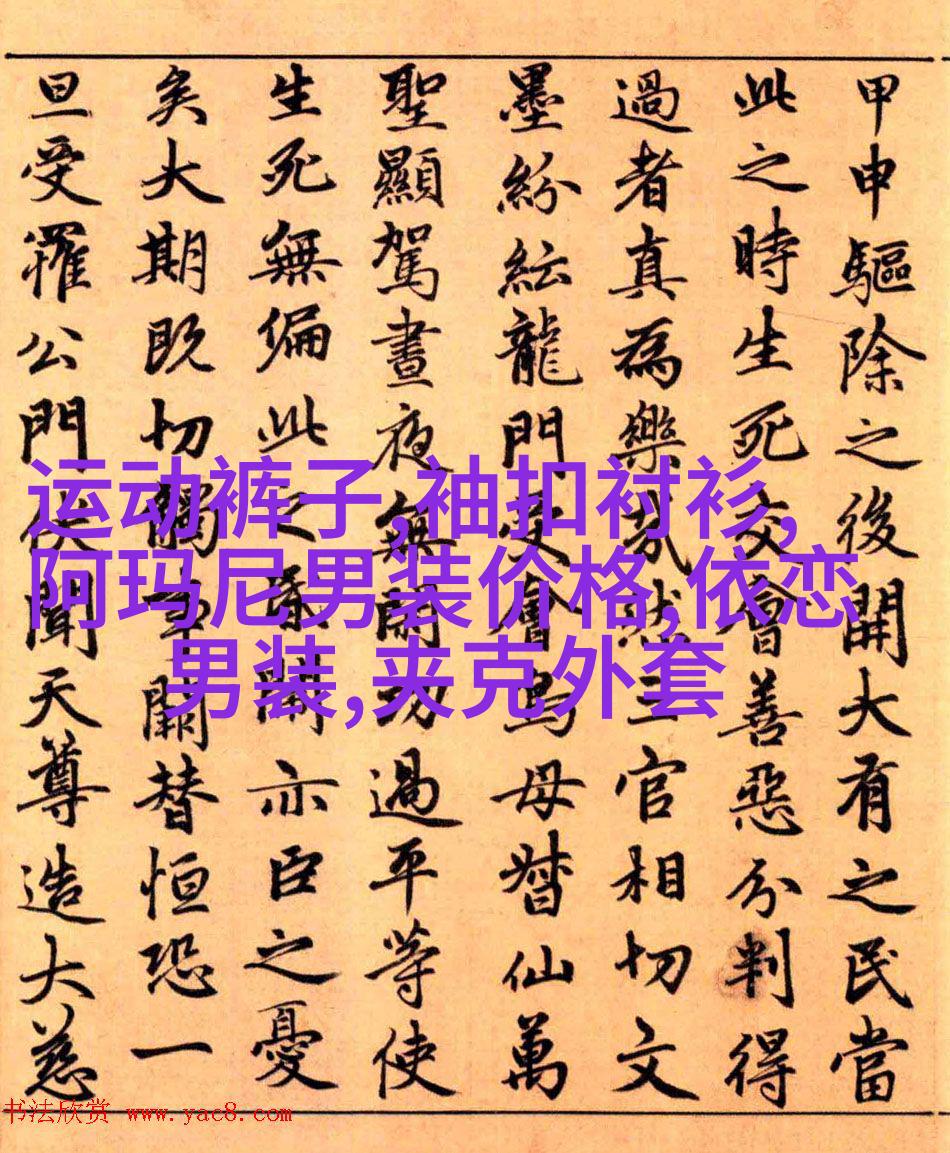 甲申驅除之後開大有之民當
此之時生死交會善惡分判得
過者真為樂哉三官相切文
墨紛紜龍門受會鳥母督仙萬
聖顯駕晝夜無閑功過平等使
生死無偏此之昏閙亦臣之憂
矣大期既切觸事闕替恒恐一
旦受罹公門伏聞天尊造大慈
运动裤子,袖扣衬衫,
阿玛尼男装价格,依恋
男装,夹克外套
书法欣赏 www.yac8.com